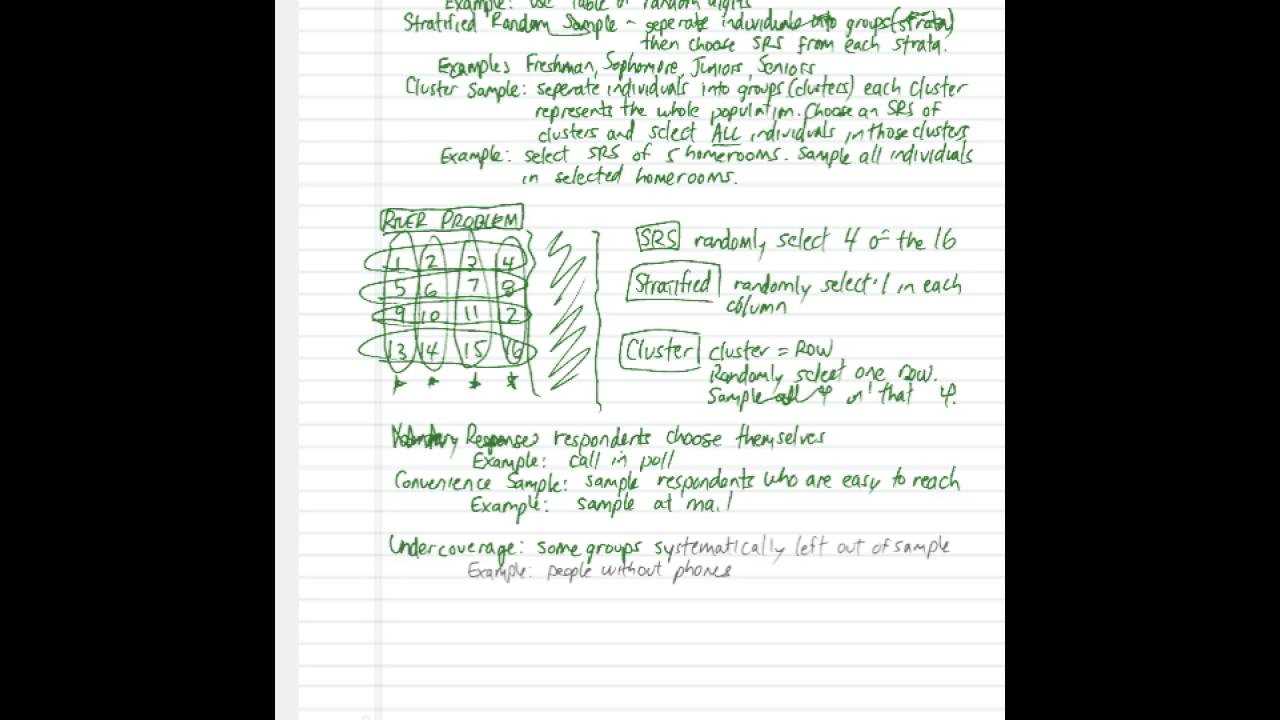 Example: use Table of random digits
Stratified Random Sample - seperate individuals into groups (strata)
then choose SRS from each strata.
Examples Freshman, Sophomore, Juniors, Seniors
Cluster Sample: seperate individuals into groups (clusters) each cluster
represents the whole population. Choose an SRS of
clusters and select ALL individuals in those clusters
Example: select SRS of 5 homerooms. Sample all individuals
in selected homerooms.
RIVER PROBLEM
1 2 3 4
5 6 7 8
9 10 11 12
13 14 15 16
SRS randomly select 4 of the 16
Stratified randomly select 1 in each
column
Cluster cluster = Row
Randomly select one row.
Sample all 4 in that 4.
Voluntary Response: respondents choose themselves
Example: call in poll
Convenience Sample: sample respondents who are easy to reach
Example: sample at mall
Undercoverage: some groups systematically left out of sample
Example: people without phones